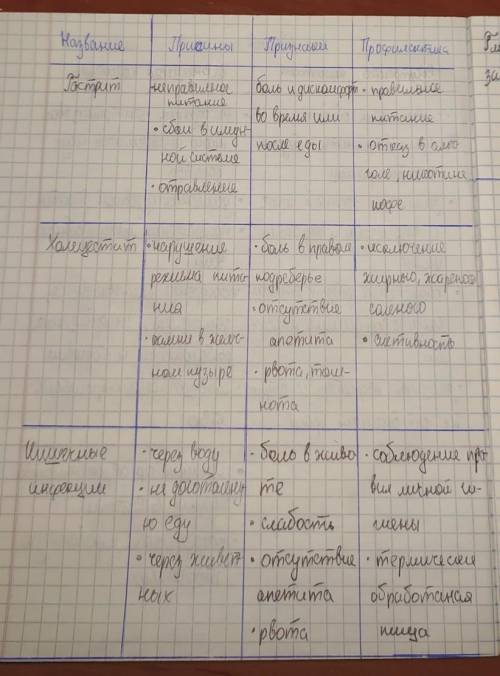 Название Причины Признаки Профилактика
Гастрит
·неправильное
питание
· сбои в имун-
ной системе
· отравление
боль и дискомфорт
во время или
после еды
· правильное
питание
· отказ в алко
голе, никотине
кофе
Холецестит
·нарушение
режима пита-
ния
·камни в желч-
ном пузыре
·боль в правом
подреберье
·отсутствие
апетита
· рвота, тош-
нота
·исключение
жирного, жареного
соленого
Кишечные
инфекции
·через воду
ю еду
· через живот-
ных
·боль в живо
те
·слабость
·отсутствие
апетита
·рвота
·соблюдение пра
вил личной ги-
гиены
·термически
обработаная
пища
за